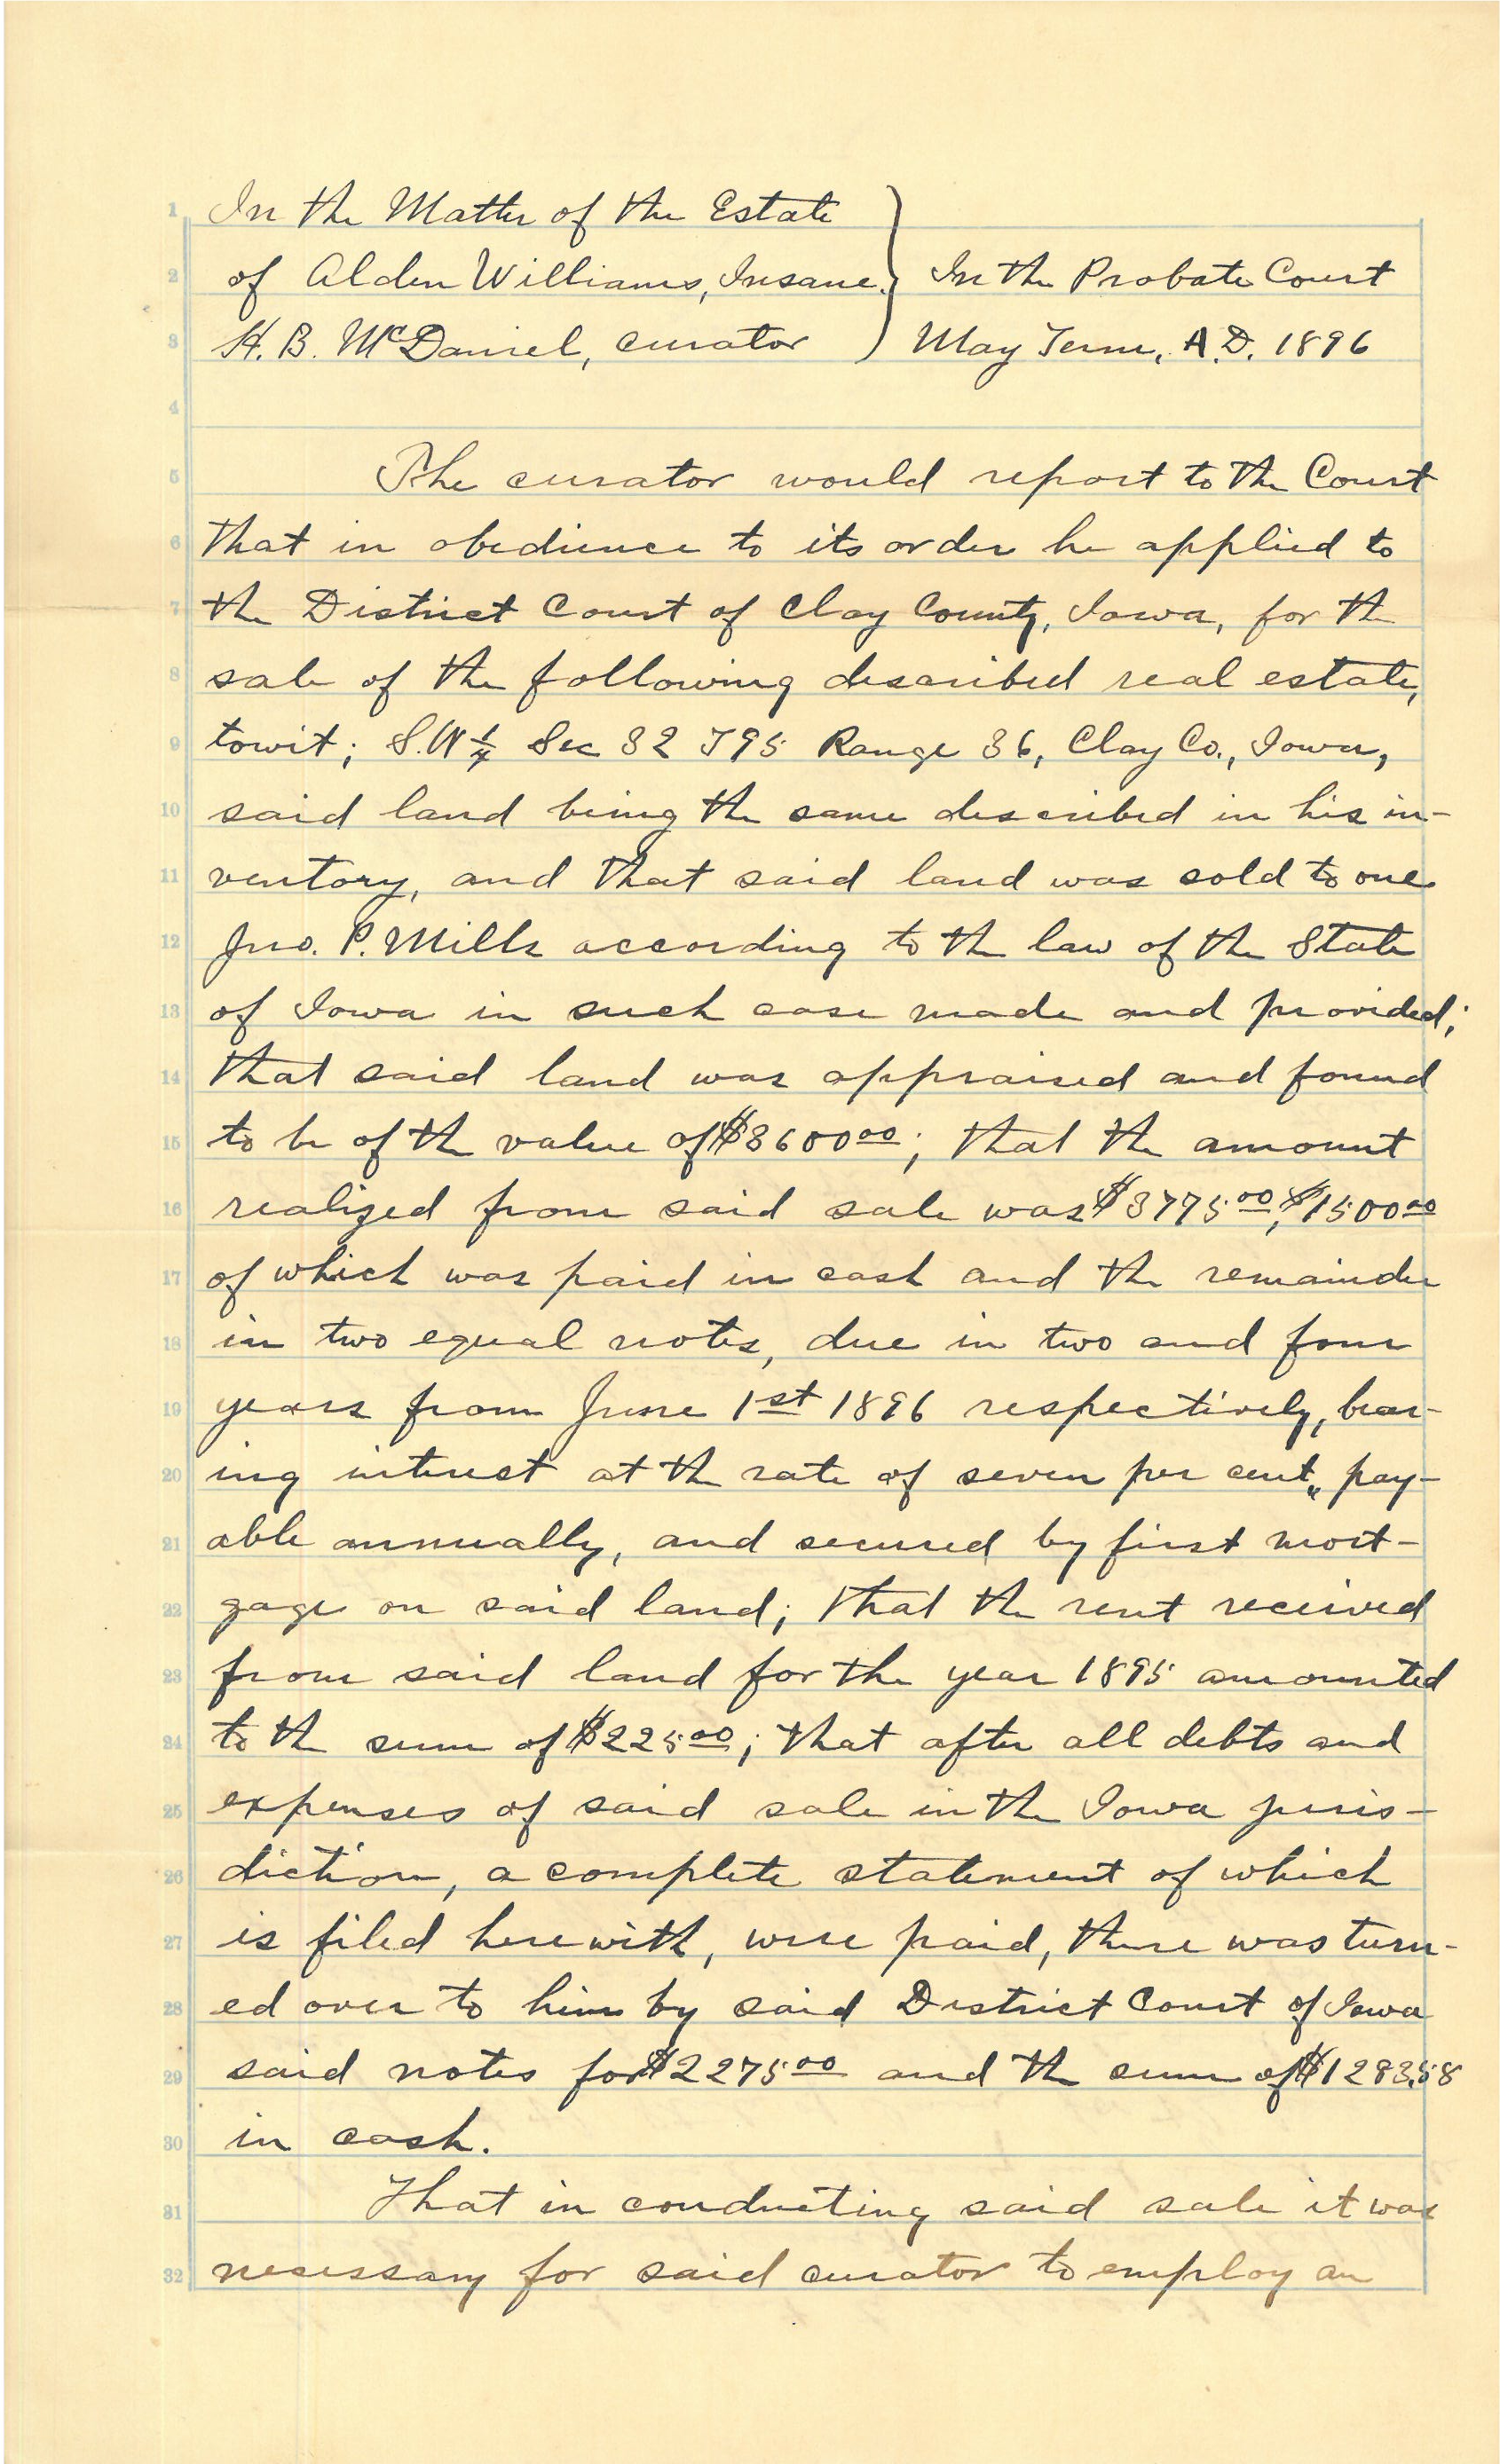 1 In the Matter of the Estate
2 of Alden Williams, Insane. In the Probate Court
3 H. B. McDaniel, curator May Term, A.D. 1896
4
5 The curator would report to the Court
6 that in obedience to its order he applied to
7 the District Court of Clay County, Iowa, for the
8 sale of the following described real estate,
9 towit; S.W 1/4 Sec 32 T95 Range 36, Clay Co., Iowa,
10 said land being the same described in his in-
11 ventory, and that said land was sold to one
12 Jno. P. Mills according to the law of the State
13 of Iowa in such case made and provided;
14 that said land was appraised and found
15 to be of the value of $3600 00; that the amount
16 realized from said sale was $3775 00, $1500 00
17 of which was paid in cash and the remainder
18 in two equal notes, due in two and four
19 years from June 1st 1896 respectively, bear-
20 ing interest at the rate of seven per cent, pay-
21 able annually, and secured by first mort-
22 gage on said land; that the rent received
23 from said land for the year 1895 amounted
24 to the sum of $225 00; that after all debts and
25 expenses of said sale in the Iowa juris-
26 diction, a complete statement of which
27 is filed herewith, were paid, there was turn-
28 ed over to him by said District Court of Iowa
29 said notes for $2275 00 and the sum of $1283.58
30 in cash.
31 That in conducting said sale it was
32 necessary for said curator to employ an